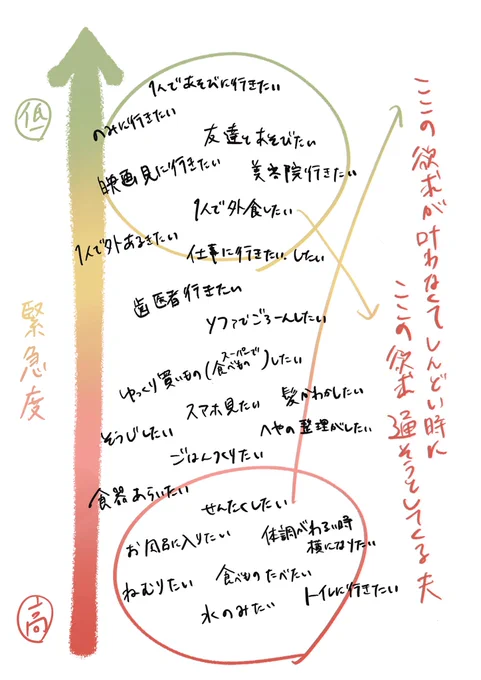 低
1人であそびに行きたい
のみに行きたい
友達とあそびたい
映画見に行きたい
美容院行きたい
1人で外食したい
1人で外あるきたい
仕事に行きたい、したい
歯医者行きたい
ソファでごろーんしたい
ゆっくり買いもの(スーパーで食べもの)したい
スマホ見たい
髪かわかしたい
そうじしたい
へやの整理がしたい
ごはんつくりたい
食器あらいたい
せんたくしたい
お風呂に入りたい
体調がわるい時
横になりたい
ねむりたい
食べものたべたい
水のみたい
トイレに行きたい
高
緊急度
ここの欲求が叶わなくてしんどい時に
ここの欲求 通そうとしてくる夫